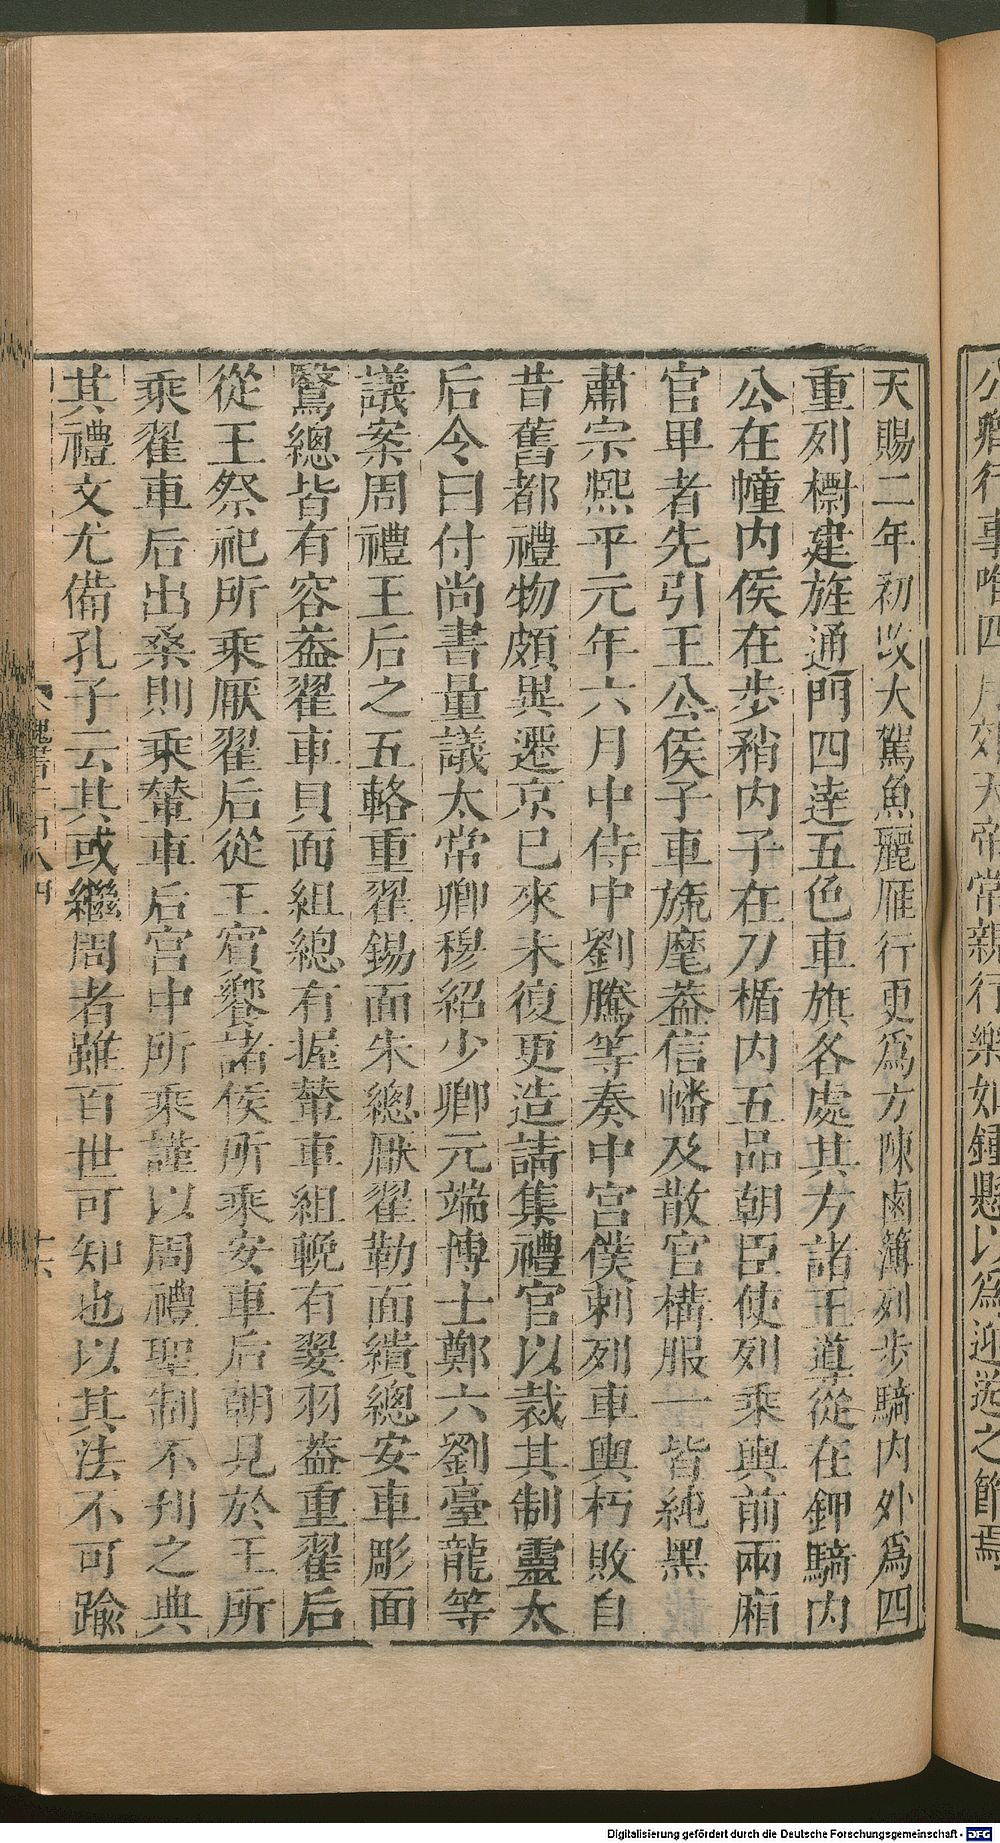 天賜二年初改大駕魚麗雁行更為方陳鹵簿列步騎內外為四
重列標建旌通門四達五色車旗各處其方諸王導從在鉀騎内
公在幢内侯在步矟内子在刀楯内五品朝臣使列乘輿前兩廂
官卑者先引王公侯子車旒麾葢信幡及散官構服一皆純黑
肅宗熈平元年六月中侍中劉騰等奏中宮僕刺列車輿朽敗自
昔舊都禮物頗異遷京已來未復更造請集禮官以裁其制靈太
后令曰付尚書量議太常卿穆紹少卿元端博士鄭六劉臺龍等
議案周禮王后之五輅重翟錫面朱總厭翟勒面繢總安車彫面
鷖總皆有容葢翟車貝面組總有握輦車組輓有翣羽葢重翟后
從王祭祀所乘厭翟后從王賓饗諸侯所乘安車后朝見於王所
乘翟車后出桑則乘輦車后宮中所乘謹以周禮聖制不刋之典
其禮文尤備孔子云其或繼周者雖百世可知也以其法不可踰
魏書一百八四
十六
公卿行事唯四月郊天帝常親行樂如鍾懸以為迎送之節焉
Digitalisierung gefördert durch die Deutsche Forschungsgemeinschaft - DFG